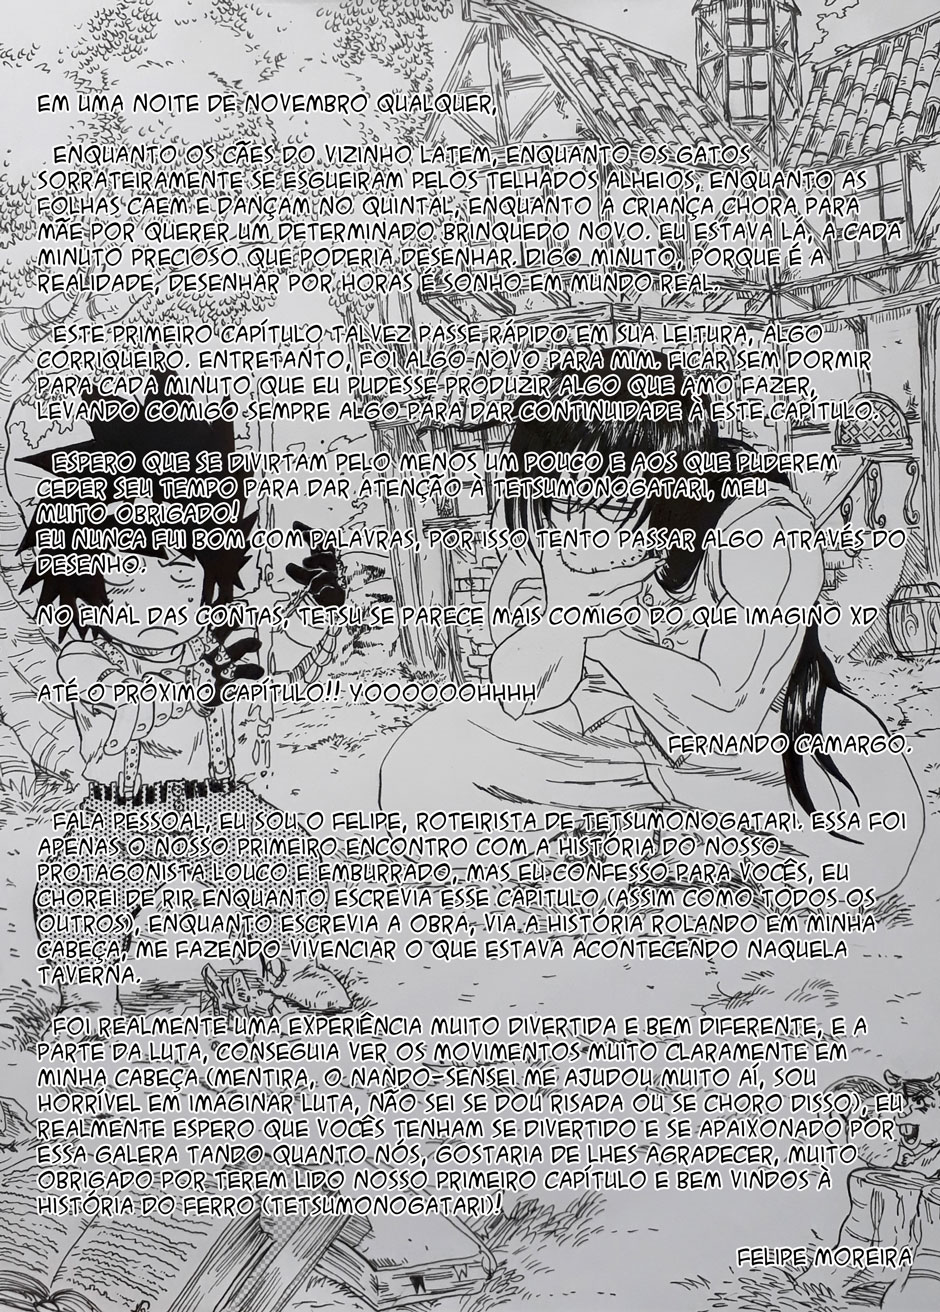 EM UMA NOITE DE NOVEMBRO QUALQUER,
ENQUANTO OS CÃES DO VIZINHO LATEM, ENQUANTO OS GATOS
SORRATEIRAMENTE SE ESGUEIRAM PELOS TELHADOS ALHEIOS, ENQUANTO AS
FOLHAS CAEM E DANÇAM NO QUINTAL, ENQUANTO A CRIANÇA CHORA PARA
MÃE POR QUERER UM DETERMINADO BRINQUEDO NOVO. EU ESTAVA LÁ, A CADA
MINUTO PRECIOSO QUE PODERIA DESENHAR. DIGO MINUTO, PORQUE É A
REALIDADE, DESENHAR POR HORAS É SONHO EM MUNDO REAL.
ESTE PRIMEIRO CAPÍTULO TALVEZ PASSE RÁPIDO EM SUA LEITURA, ALGO
CORRIQUEIRO. ENTRETANTO, FOI ALGO NOVO PARA MIM. FICAR SEM DORMIR
PARA CADA MINUTO QUE EU PUDESSE PRODUZIR ALGO QUE AMO FAZER,
LEVANDO COMIGO SEMPRE ALGO PARA DAR CONTINUIDADE À ESTE CAPÍTULO.
ESPERO QUE SE DIVIRTAM PELO MENOS UM POUCO E AOS QUE PUDEREM
CEDER SEU TEMPO PARA DAR ATENÇÃO A TETSUMONOGATARI, MEU
MUITO OBRIGADO!
EU NUNCA FUI BOM COM PALAVRAS, POR ISSO TENTO PASSAR ALGO ATRAVÉS DO
DESENHO.
NO FINAL DAS CONTAS, TETSU SE PARECE MAIS COMIGO DO QUE IMAGINO XD
ATÉ O PRÓXIMO CAPÍTULO!! YOOOOOOHHHH
FERNANDO CAMARGO.
FALA PESSOAL, EU SOU O FELIPE, ROTEIRISTA DE TETSUMONOGATARI. ESSA FOI
APENAS O NOSSO PRIMEIRO ENCONTRO COM A HISTÓRIA DO NOSSO
PROTAGONISTA LOUCO E EMBURRADO, MAS EU CONFESSO PARA VOCÊS, EU
CHOREI DE RIR ENQUANTO ESCREVIA ESSE CAPÍTULO (ASSIM COMO TODOS OS
OUTROS), ENQUANTO ESCREVIA A OBRA, VIA A HISTÓRIA ROLANDO EM MINHA
CABEÇA, ME FAZENDO VIVENCIAR O QUE ESTAVA ACONTECENDO NAQUELA
TAVERNA.
FOI REALMENTE UMA EXPERIÊNCIA MUITO DIVERTIDA E BEM DIFERENTE, E A
PARTE DA LUTA, CONSEGUIA VER OS MOVIMENTOS MUITO CLARAMENTE EM
MINHA CABEÇA (MENTIRA, O NANDO-SENSEI ME AJUDOU MUITO AÍ, SOU
HORRÍVEL EM IMAGINAR LUTA, NÃO SEI SE DOU RISADA OU SE CHORO DISSO), EU
REALMENTE ESPERO QUE VOCÊS TENHAM SE DIVERTIDO E SE APAIXONADO POR
ESSA GALERA TANDO QUANTO NÓS, GOSTARIA DE LHES AGRADECER, MUITO
OBRIGADO POR TEREM LIDO NOSSO PRIMEIRO CAPÍTULO E BEM VINDOS À
HISTÓRIA DO FERRO (TETSUMONOGATARI)!
FELIPE MOREIRA